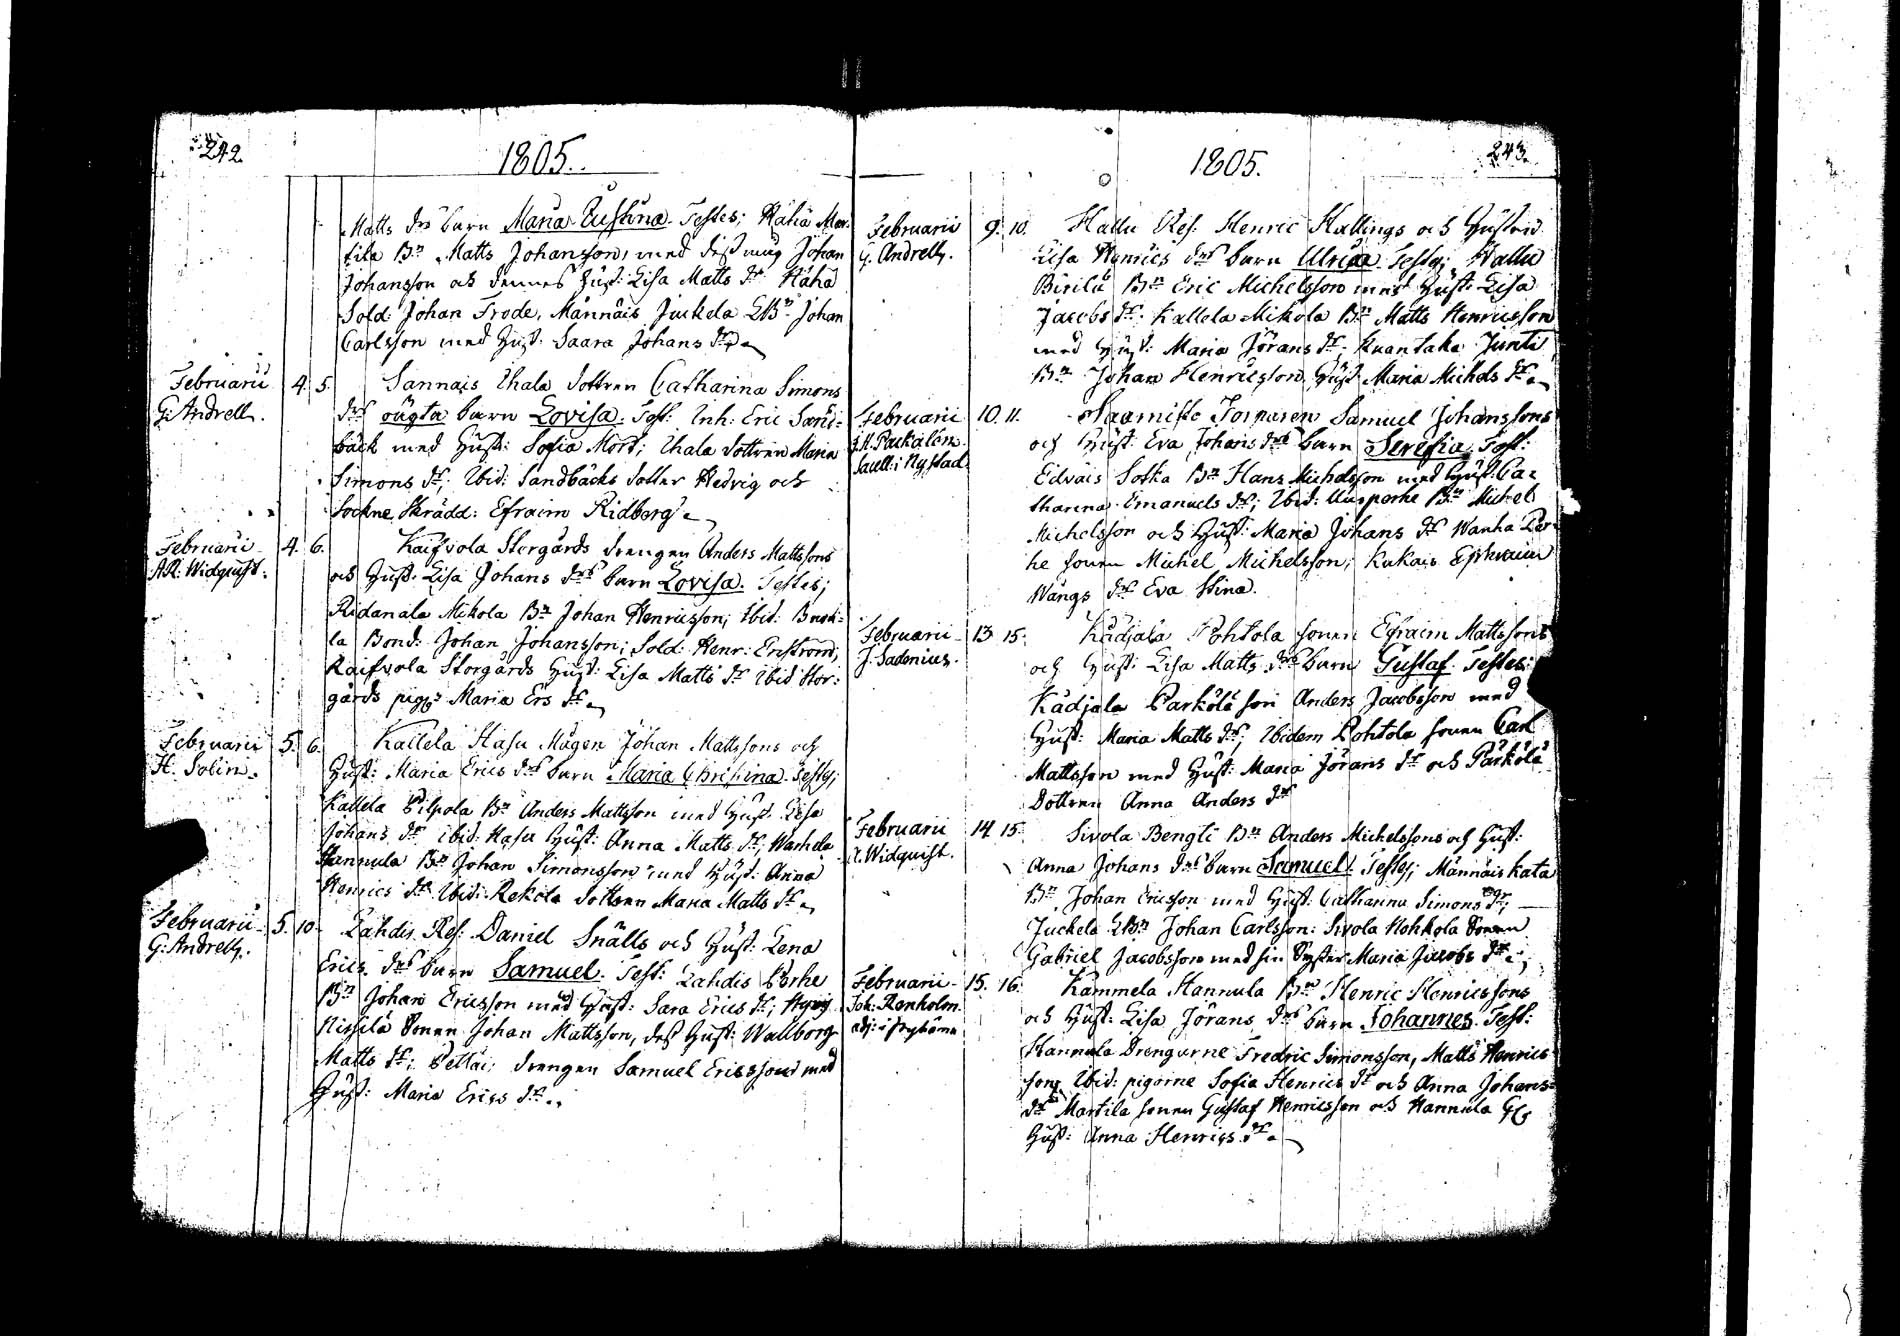 242.
1805.
Matts dr barn Maria Christina. Testes; Kähiä Mar-
tila Bn Matts Johansson, med dess måg Johan
Johansson och dennes Hust: Lisa Matts dr Kähiä
Sold: Johan Frode, Männäis Juckela LBn Johan
Carlsson med Hust: Saara Johans dr
Februarii 4. 5. Sannais Uhala dottren Catharina Simons
G: Andrell. drs oägta barn Lovisa. Test: Inh: Eric Sand-
bäck med Hust: Sofia Mört; Uhala dottren Maria
Simons dr; Ibid: Sandbäcks dotter Hedvig och
Sockne Skrädd: Efraim Ridberg
Februarii 4. 6. Kaifvola Storgårds drengen Anders Mattssons
AR: Widquist. och Hust: Lisa Johans drs barn Lovisa. Testes;
Ridanala Mikola Bn Johan Henricsson; Ibid:
la Bond: Johan Johansson; Sold: Henr: Enström,
Kaifvola Storgårds Hust: Lisa Matts dr Ibid Stor-
gårds piga Maria Ers dr
Februarii 5. 6. Kallela Hasu Mågen Johan Mattssons och
H. Solin. Hust: Maria Erics drs barn Maria Christina. Testes;
Kallela Pilpola Bn Anders Mattsson med Hust: Lisa
Johans dr ibid: Hasu Hust: Anna Matts dr; Wanhela
Hannula Bn Johan Simonsson med Hust: Anna
Henrics dr Ibid: Rekola dottren Maria Matts dr
Februarii 5. 10. Lahdis Ref: Daniel Snälls och Hust: Lena
G: Andrell. Erics drs barn Samuel. Test: Lahdis Perhe
Bn Johan Ericsson med Hust: Sara Erics dr;
Nissilä Sonen Johan Mattsson, dess Hust: Wallborg
Matts dr; drengen Samuel Ericsson med
Hust: Maria Erics dr
243.
1805.
Februarii 9. 10. Hallu Ref: Henric Hallings och Hustru
G. Andrell. Lisa Henrics drs barn Ulrica. Testes; Hallu
Pirilä Bn Eric Michelsson med Hust: Lisa
Jacobs dr; Kallela Mikola Bn Matts Henricsson
med Hust: Maria Jörans dr; Kuantaka Junti
Bn Johan Henricsson Hust: Maria Michels dr
Februarii 10. 11. Saamisto Torparen Samuel Johanssons
och Hust: Eva Johans drs barn Serefia. Test:
Sacell: i Nystad. Eidväis Sotka Bn Hans Michelsson med Hust: Ca-
tharina Emanuels dr; Ibid: Uusperhe Bn Michel
Michelsson och Hust: Maria Johans dr Wanha Per-
he sonen Michel Michelsson; Kukais Ephraim
Wängs dr Eva Stina.
Februarii 13 15. Kädjala Pohtola sonen Efraim Mattssons
J. Sadenius. och Hust: Lisa Matts drs barn Gustaf. Testes:
Kädjala Parkölä son Anders Jacobsson med
Hust: Maria Matts dr; Ibidem Pohtola sonen Carl
Mattsson med Hust: Maria Jörans dr och Pärkölä
Dottren Anna Anders dr
Februarii 14. 15. Sivola Bengti Bn Anders Michelssons och Hust:
A. Widquist. Anna Johans drs barn Samuel. Testes; Männäis Kata
Bn Johan Ericsson med Hust: Catharina Simons dr;
Juckela LBn Johan Carlsson: Sivola Nohkola Sonen
Gabriel Jacobsson med sin Syster Maria Jacobs dr
Februarii 15. 16. Kammela Hannula Bn Henric Henricssons
Joh: Renholm och Hust: Lisa Jörans drs barn Johannes. Test:
Hannula Drengarne Fredric Simonsson, Matts Henrics-
son, Ibid: pigorne Sofia Henrics dr och Anna Johans-
dr Martila sonen Gustaf Henricsson och Hannula
Hust: Anna Henrics dr